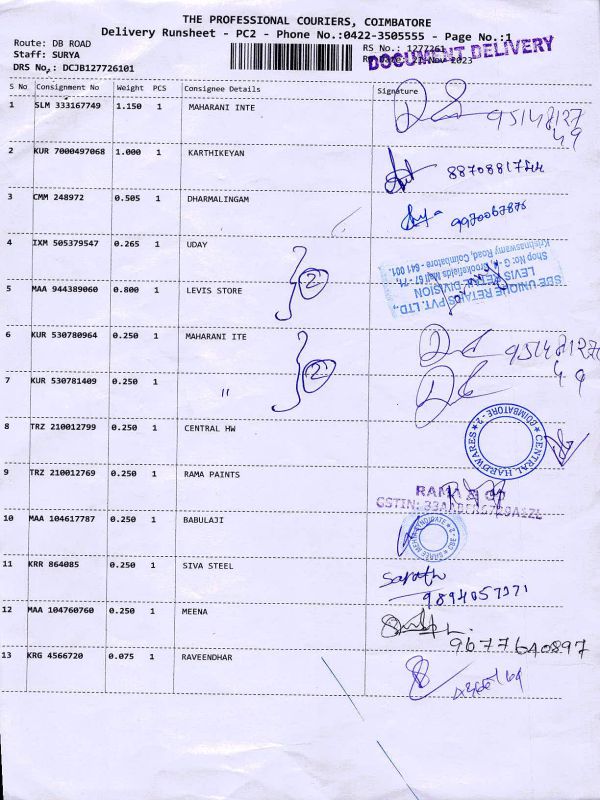 THE PROFESSIONAL COURIERS, COIMBATORE
Delivery Runsheet - PC2 - Phone No.:0422-3505555 - Page No.:1
Route: DB ROAD
RS No.: 1277261
DOCUMENT DELIVERY
Staff: SURYA
21 Nov 2023
DRS No.: DCJB127726101
S No Consignment No Weight PCS Consignee Details Signature
1 SLM 333167749 1.150 1 MAHARANI INTE
95148127
49
2 KUR 7000497068 1.000 1 KARTHIKEYAN
8870881744
3 CMM 248972 0.505 1 DHARMALINGAM
9920067875
4 IXM 505379547 0.265 1 UDAY
2
SDE UNIQUE RETAILS PVT. LTD.,
LEVIS RETAIL DIVISION
Shop No: G - Brookefields Mall 67 - 71,
Krishnaswamy Road, Coimbatore - 641 001.
5 MAA 944389060 0.800 1 LEVIS STORE
6 KUR 530780964 0.250 1 MAHARANI ITE
95148127
49
2
7 KUR 530781409 0.250 1 "
8 TRZ 210012799 0.250 1 CENTRAL HW
CENTRAL HARDWARES
COIMBATORE - 2
9 TRZ 210012769 0.250 1 RAMA PAINTS
RAMA & CO
10 MAA 104617787 0.250 1 BABULAJI
11 KRR 864085 0.250 1 SIVA STEEL
Sarath
9894057371
12 MAA 104760760 0.250 1 MEENA
9677640897
13 KRG 4566720 0.075 1 RAVEENDHAR